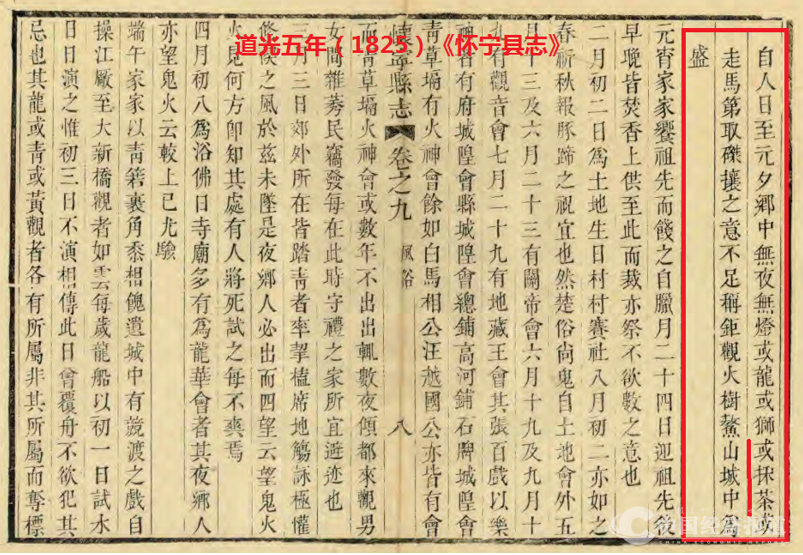 道光五年（1825）《怀宁县志》
自人日至元夕鄉中無夜無燈或龍或獅或採茶或
走馬第取磔攘之意不足稱鉅觀火樹鰲山城中爲
盛
元宵家家饗祖先而餞之自臘月二十四日迎祖先後
早晚皆焚香上供至此而裁亦祭不欲數之意也
二月初二日爲土地生日村村賽社八月初二亦如之
春祈秋報豚蹄之祝宜也然楚俗尚鬼自土地會外五
月十三及六月二十三有關帝會六月十九及九月十
九有觀音會七月二十九有地藏王會其張百戲以樂
神者有府城隍會縣城隍會總鋪高河鋪石牌城隍會
青草塥有火神會餘如白馬相公汪越國公亦皆有會
懷寧縣志
卷之九
風俗
八
而青草塥火神會或數年不出出輒數夜傾都來觀男
女間雜莠民竊發每在此時守禮之家所宜避迹也
三月三日郊外所在皆踏青者率挈榼席地觴詠極懽
脩禊之風於茲未墜是夜鄉人必出而四望云望鬼火
火見何方卽知其處有人將死試之每不爽焉
四月初八爲浴佛日寺廟多有爲龍華會者其夜鄉人
亦望鬼火云較上巳尤驗
端午家家以青箬裹角黍相餽遺城中有競渡之戲自
操江厰至大新橋觀者如雲每歲龍船以初一日試水
日日演之惟初三日不演相傳此日曾覆舟不欲犯其
忌也其龍或青或黃觀者各有所屬非其所屬而奪標